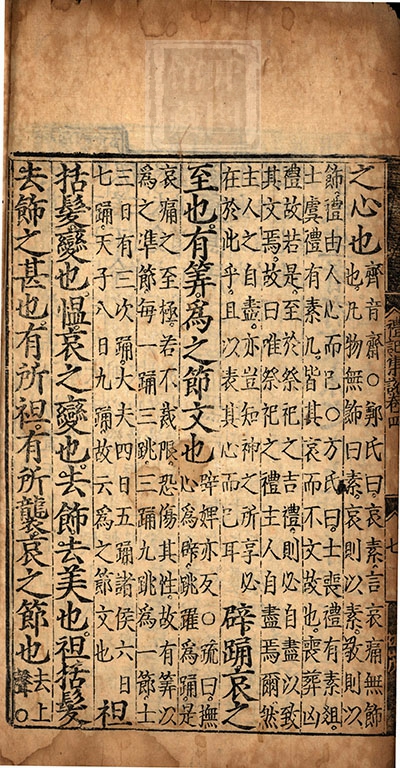 之心也齊音齋○鄭氏曰哀素言哀痛無飾
也凡物無飾曰素哀則以素敬則以
飾禮由人心而已○方氏曰士喪禮有素俎
士虞禮有素几皆其哀而不文故也喪葬凶
禮故若是至於祭祀之吉禮則必自盡以致
其文焉故曰唯祭祀之禮主人自盡焉爾然
主人之自盡亦豈知神之所享必
在於此乎且以表其心而已耳
辟踊哀之
至也有筭為之節文也
辟婢亦反○疏曰撫
心為辟跳躍為踊是
哀痛之至極若不裁限恐傷其性故有筭以
為之準節每一踊三跳三踊九跳為一節士
三日有三次踊大夫四日五踊諸侯六日
七踊天子八日九踊故云為之節文也
袒
括髮變也慍哀之變也去飾去美也袒括髮
去飾之甚也有所袒有所襲哀之節也
去上
聲○